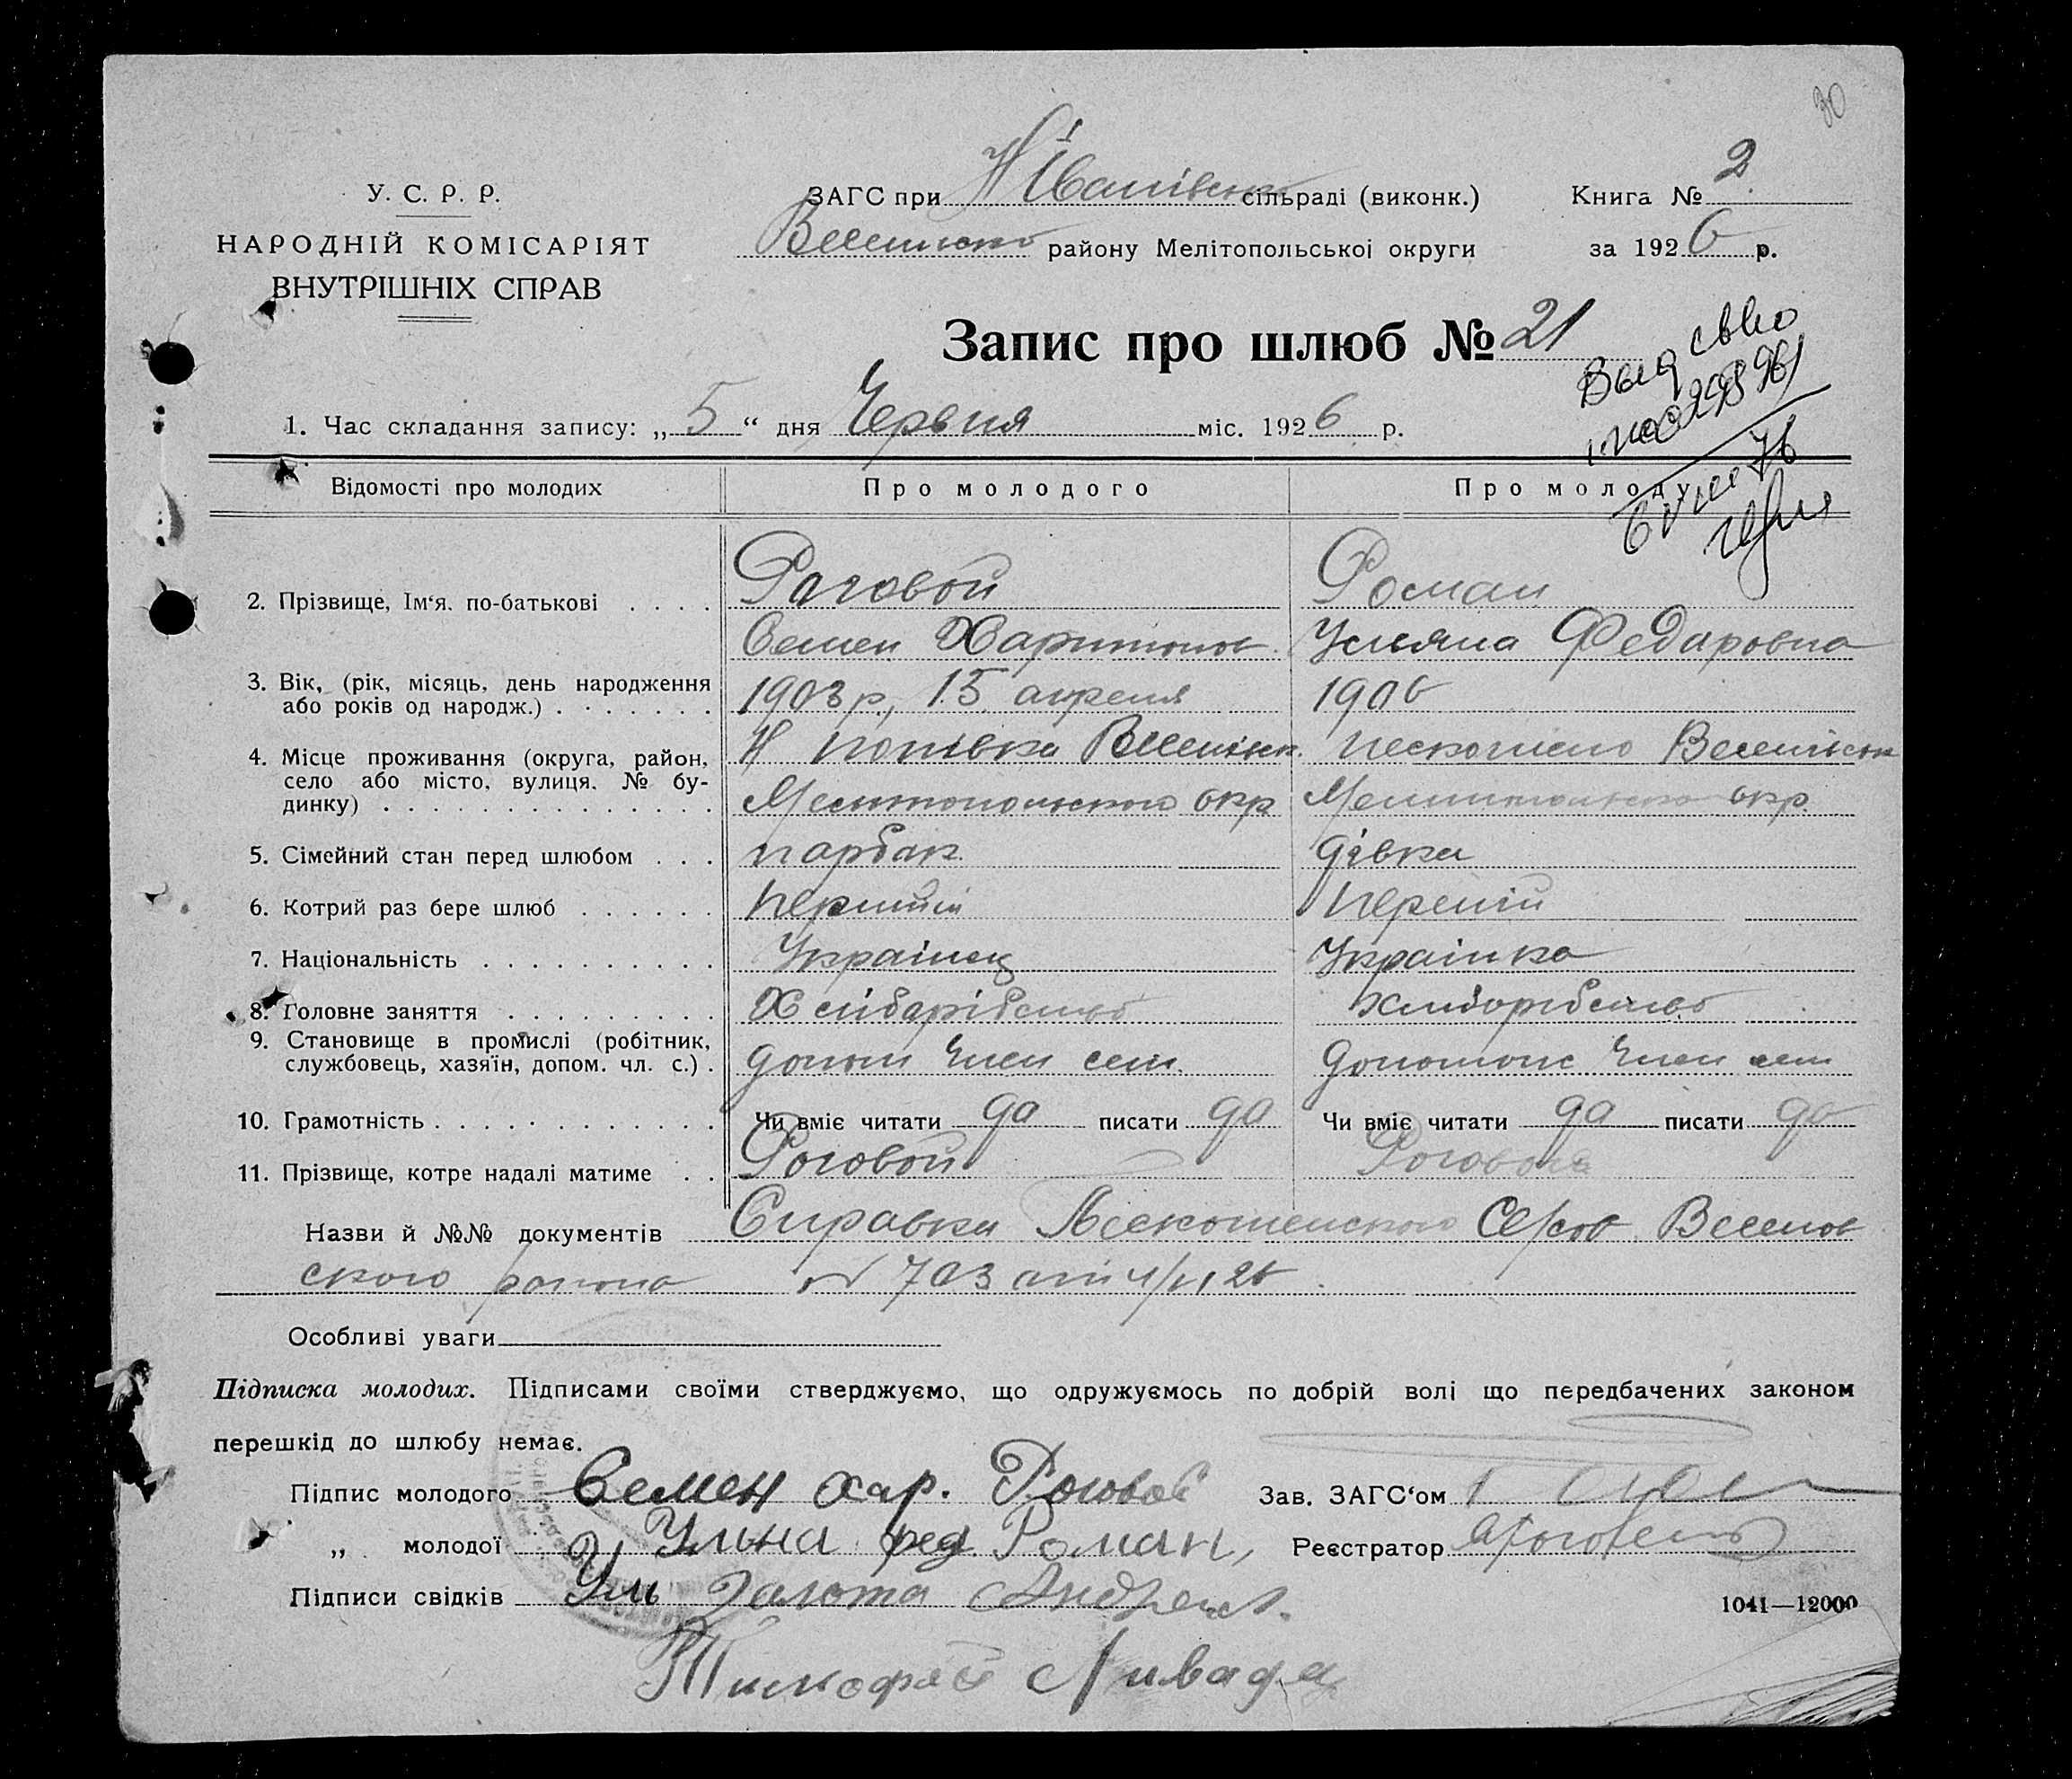 30
У. С. Р. Р.
НАРОДНІЙ КОМІСАРІЯТ
ВНУТРІШНІХ СПРАВ
ЗАГС при Н Іванівско сільраді (виконк.)
Веселисько району Мелітопольської округи
Книга № 2
за 1926 р.
Запис про шлюб № 21
1. Час складання запису: „ 5 “ дня Червня міс. 1926 р.
Відомості про молодих Про молодого Про молоду
2. Прізвище, Ім‘я, по-батькові . . . . Роговой Роман
Семен Харитонов. Ульяна Федаровна
3. Вік, (рік, місяць, день народження
або років од народж.) . . . . . . . 1903 р., 15 апреля 1906
4. Місце проживання (округа, район,
село або місто, вулиця, № бу-
динку) . . . . . . . . . . . . . .
Мелитопольского окр Мелитопольско окр.
5. Сімейний стан перед шлюбом . . . парбак дівка
6. Котрий раз бере шлюб . . . . . . перший перший
7. Національність . . . . . . . . . . Украінец Украінка
8. Головне заняття . . . . . . . . . Хлібарібство хлиборібство
9. Становище в промислі (робітник,
службовець, хазяїн, допом. чл. с.) . допом член сем. допомож член сем
10. Грамотність . . . . . . . . . . . . Чи вміє читати да писати да Чи вміє читати да писати да
11. Прізвище, котре надалі матиме . . Роговой Роговая
Назви й №№ документів Справка Веселов
ского района № 703
Особливі уваги
Підписка молодих. Підписами своїми стверджуємо, що одружуємось по добрій волі що передбачених законом
перешкід до шлюбу немає.
Підпис молодого Семен хар. Роговой Зав. ЗАГС‘ом
„ молодої Ульна фед. Роман, Реєстратор
Підписи свідків Уль Золота Андрей.
1041—12000
Тимофей Ливада